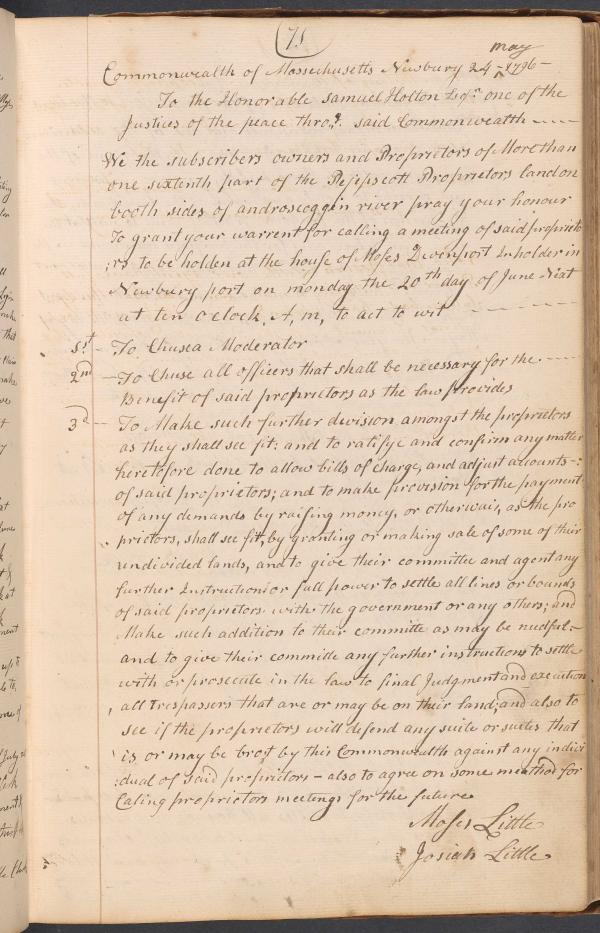 71
may
Commonwealth of Massechusetts Newbury 24 - 1796 -
To the Honorable Samuel Holton Esqr. one of the
Justices of the peace thro,t. said Commonwealth ----
We the subscribers owners and Proprietors of More than
one sixtenth part of the Pejepscott Proprietors land on
booth sides of androscoggin river pray your honour
To grant your warrent for calling a meeting of said propriето
:rs to be holden at the house of Moses Davenport Inholder in
Newbury port on monday the 20th day of June Next
at ten oclock, A, m, to act to wit - - - -
1st - To Chuse a Moderator
2nd - To Chuse all officers that shall be necessary for the ----
Benefit of said proprietors as the law provides
3d - To Make such further devision amongst the proprietors
as they shall see fit: and to ratifye and confirm any matter
heretofore done to allow bills of charge, and adjust acounts -:
of said proprietors; and to make provision for the payment
of any demands by raising money, or otherwais, as the pro
prietors, shall see fit, by granting or making sale of some of their
undivided lands, and to give their committe and agent any
further Instructions or full power to settle all lines or bounds
of said proprietors with the government or any others; and
Make such addition to their committe as may be nudful -
and to give their committe any further instructions to settle
with or prosecute in the law to final Judgment and execution
all trespassers that are or may be on their land; and also to
see if the proprietors will defend any suite or suites that
is or may be brot by this Commonwealth against any indivi
:dual of said proprietors - also to agree on some meathod for
Caling proprietors meetings for the future
Moses Little
Josiah Little